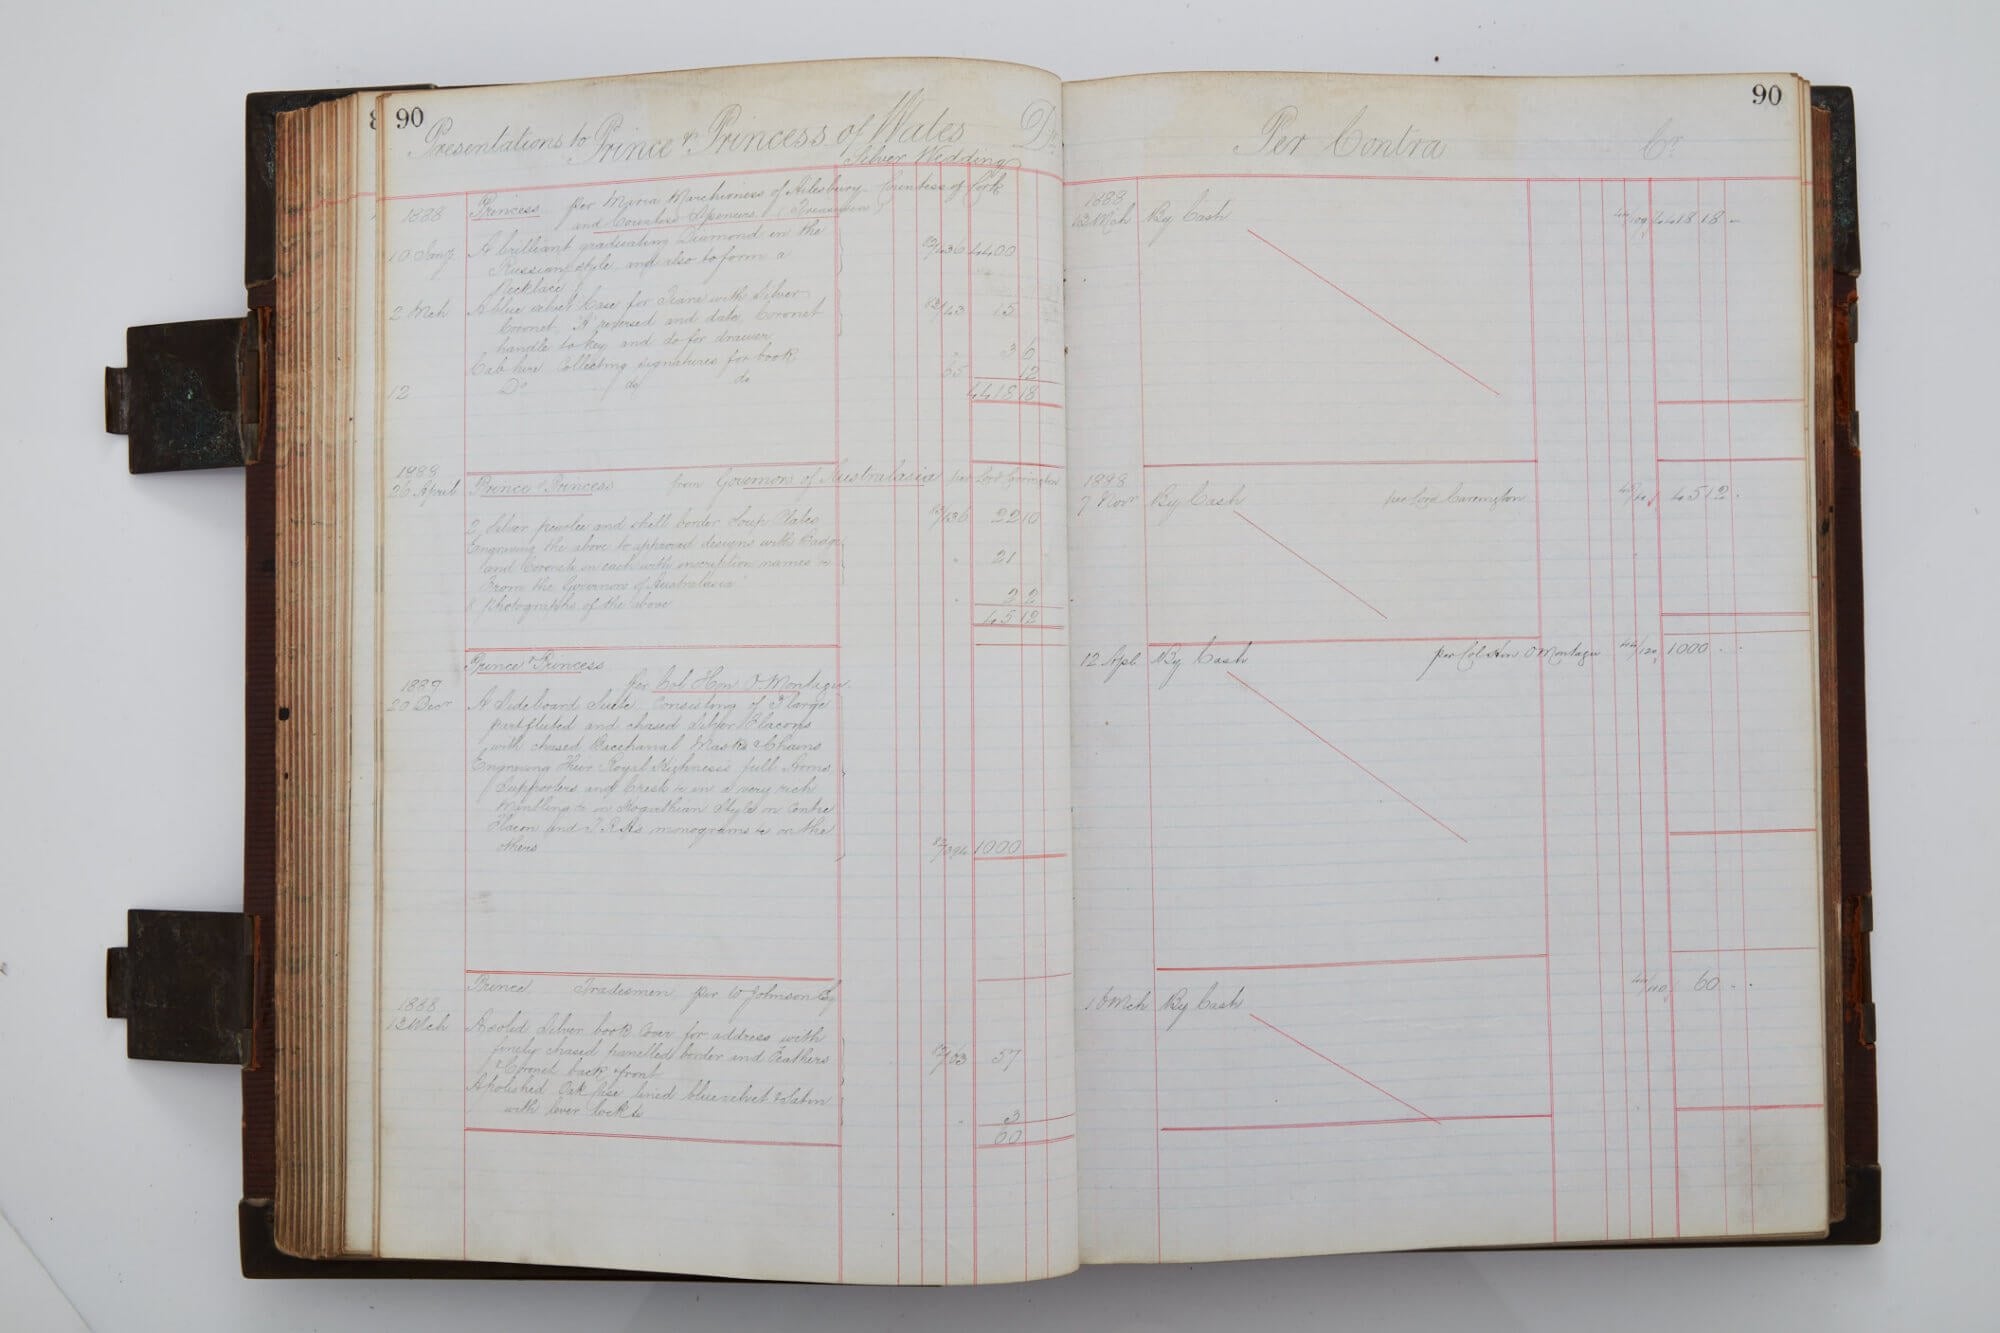 90
Presentations to Prince & Princess of Wales Dr
Silver Wedding
1888 Princess per Maria Marchioness of Ailesbury Countess of Cork
and Countess Spencer (Treasurers)
10 Jany A brilliant graduating Diamond in the
Russian style and also to form a
Necklace 82/436 4400
2 Mch A blue velvet Case for Tiara with Silver
Coronet, "A" reversed and date, Coronet 82/43 15
handle to key, and do for drawer
Cab hire Collecting signatures for book 3 6
12 Do do do 55 12
4418 18
1888
26 April Prince & Princess from Governors of Australasia per Lord Carrington
2 Silver pearlee and shell border Soup Plates 82/136 22 10
Engraving the above to approved designs with Badge
and Coronets on each with inscription names &
From the Governors of Australasia 21
8 photographs of the above 2 2
45 12
Prince & Princess
per Col Hon O. Montagu
1889
20 Decr A Sideboard Suite Consisting of 3 large
part fluted and chased Silver Flacons
with chased Bacchanal Masks & Chains
Engraving Their Royal Highness's full Arms,
Supporters and Crest & in a very rich
Mantling & in Hogarthian Style on Centre
Flacon and T.R.H's monograms & on the
others 82/394 1000
Prince Tradesmen, per W Johnson Esq
1888
13 Mch A solid Silver book Cover for address with
finely chased panelled border and Feathers 82/63 57
& Coronet back & front
A polished Oak Case lined blue velvet & Satin
with lever lock & 3
60
90
Per Contra Cr
1888
13 Mch By Cash 44/109 4418 18 -
1888
7 Novr By Cash per Lord Carrington 45 12 -
12 Apl By Cash per Col Hon O Montagu 44/120 1000 - -
16 Mch By Cash 44/110 60 - -